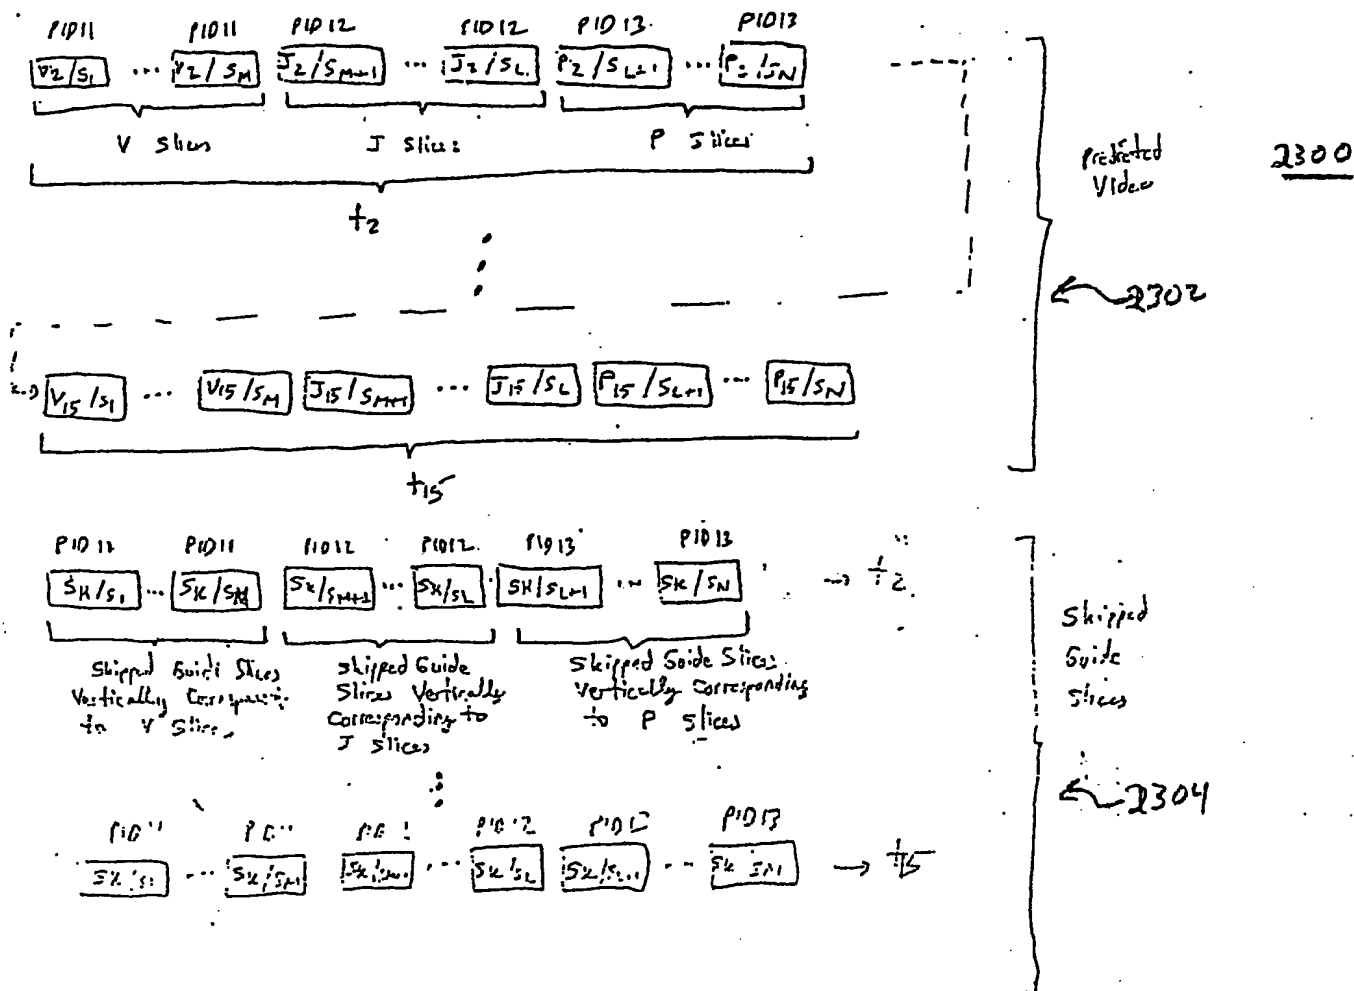 PID11 PID11 PID12 PID12 PID13 PID13
V2/S1 ... V2/SM J2/SM+1 ... J2/SL P2/SL+1 ... P2/SN
V Slices J Slices P Slices
t2
Predicted
Video
2300
2302
V15/S1 ... V15/SM J15/SM+1 ... J15/SL P15/SL+1 ... P15/SN
t15
PID11 PID11 PID12 PID12 PID13 PID13
SK/S1 ... SK/SM SK/SM+1 ... SK/SL SK/SL+1 ... SK/SN → t2
Skipped Guide Slices
Vertically
to V Slices
Skipped Guide
Slices Vertically
Corresponding to
J Slices
Skipped Guide Slices
Vertically Corresponding
to P Slices
Skipped
Guide
Slices
2304
PID12 PID13
SK/S1 ... SK/SM ... SK/SL SK/SL+1 ... → t15